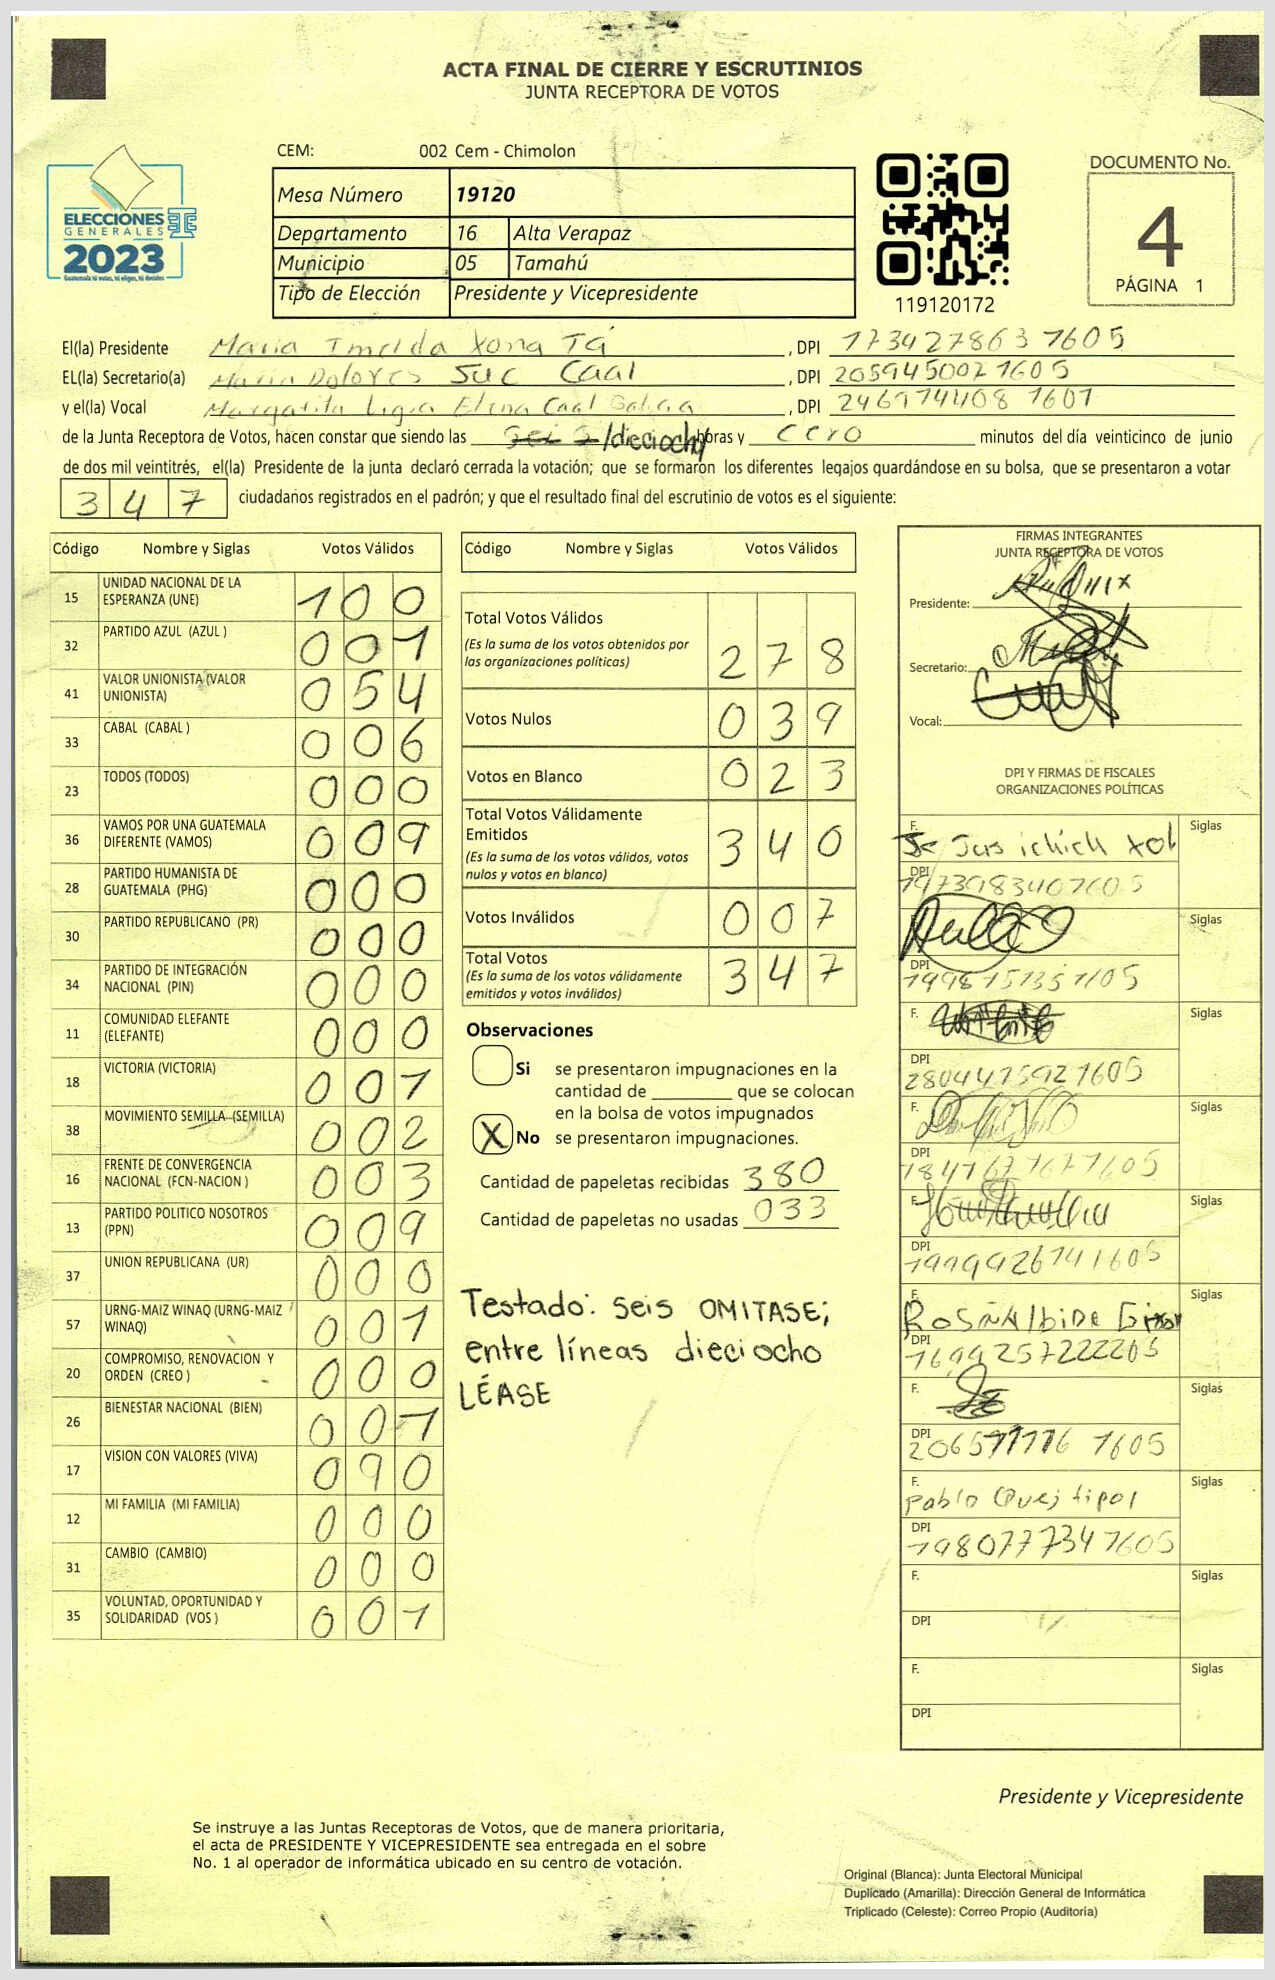 ACTA FINAL DE CIERRE Y ESCRUTINIOS
JUNTA RECEPTORA DE VOTOS
CEM: 002 Cem - Chimolon
ELECCIONES
GENERALES
2023
Mesa Número 19120
Departamento 16 Alta Verapaz
Municipio 05 Tamahú
Tipo de Elección Presidente y Vicepresidente
119120172
DOCUMENTO No.
4
PÁGINA 1
El(la) Presidente Maria Imelda Xona Tá, DPI 173427863 1605
EL(la) Secretario(a) Maria Dolores Suc Caal, DPI 205945002 1605
y el(la) Vocal Margarita Ligia Elena Caal, DPI 246974408 1601
de la Junta Receptora de Votos, hacen constar que siendo las seis /dieciocho/ horas y cero minutos del día veinticinco de junio
de dos mil veintitrés, el(la) Presidente de la junta declaró cerrada la votación; que se formaron los diferentes legajos guardándose en su bolsa, que se presentaron a votar
347 ciudadanos registrados en el padrón; y que el resultado final del escrutinio de votos es el siguiente:
Código Nombre y Siglas Votos Válidos
15 UNIDAD NACIONAL DE LA ESPERANZA (UNE) 100
32 PARTIDO AZUL (AZUL ) 001
41 VALOR UNIONISTA (VALOR UNIONISTA) 054
33 CABAL (CABAL ) 006
23 TODOS (TODOS) 000
36 VAMOS POR UNA GUATEMALA DIFERENTE (VAMOS) 009
28 PARTIDO HUMANISTA DE GUATEMALA (PHG) 000
30 PARTIDO REPUBLICANO (PR) 000
34 PARTIDO DE INTEGRACIÓN NACIONAL (PIN) 000
11 COMUNIDAD ELEFANTE (ELEFANTE) 000
18 VICTORIA (VICTORIA) 001
38 MOVIMIENTO SEMILLA (SEMILLA) 002
16 FRENTE DE CONVERGENCIA NACIONAL (FCN-NACION ) 003
13 PARTIDO POLITICO NOSOTROS (PPN) 009
37 UNION REPUBLICANA (UR) 000
57 URNG-MAIZ WINAQ (URNG-MAIZ WINAQ) 001
20 COMPROMISO, RENOVACION Y ORDEN (CREO ) 000
26 BIENESTAR NACIONAL (BIEN) 001
17 VISION CON VALORES (VIVA) 090
12 MI FAMILIA (MI FAMILIA) 000
31 CAMBIO (CAMBIO) 000
35 VOLUNTAD, OPORTUNIDAD Y SOLIDARIDAD (VOS ) 001
Código Nombre y Siglas Votos Válidos
Total Votos Válidos 278
(Es la suma de los votos obtenidos por
las organizaciones políticas)
Votos Nulos 039
Votos en Blanco 023
Total Votos Válidamente
Emitidos 340
(Es la suma de los votos válidos, votos
nulos y votos en blanco)
Votos Inválidos 007
Total Votos 347
(Es la suma de los votos válidamente
emitidos y votos inválidos)
Observaciones
Si se presentaron impugnaciones en la
cantidad de ________ que se colocan
en la bolsa de votos impugnados
X No se presentaron impugnaciones.
Cantidad de papeletas recibidas 380
Cantidad de papeletas no usadas 033
Testado: seis OMITASE;
entre líneas dieciocho
LÉASE
FIRMAS INTEGRANTES
JUNTA RECEPTORA DE VOTOS
Presidente:
Secretario:
Vocal:
DPI Y FIRMAS DE FISCALES
ORGANIZACIONES POLÍTICAS
F. Jesus ichich xol Siglas
DPI 197398340 1605
F. Siglas
DPI
F. Siglas
DPI 280447592 1605
F. Siglas
DPI 184767767 1605
F. Siglas
DPI 199992674 1605
F. Siglas
DPI 1699257222205
F. Siglas
DPI
F. Pablo Quej tipol Siglas
DPI 198077734 1605
F. Siglas
DPI
F. Siglas
DPI
Presidente y Vicepresidente
Se instruye a las Juntas Receptoras de Votos, que de manera prioritaria,
el acta de PRESIDENTE Y VICEPRESIDENTE sea entregada en el sobre
No. 1 al operador de informática ubicado en su centro de votación.
Original (Blanca): Junta Electoral Municipal
Duplicado (Amarilla): Dirección General de Informática
Triplicado (Celeste): Correo Propio (Auditoría)